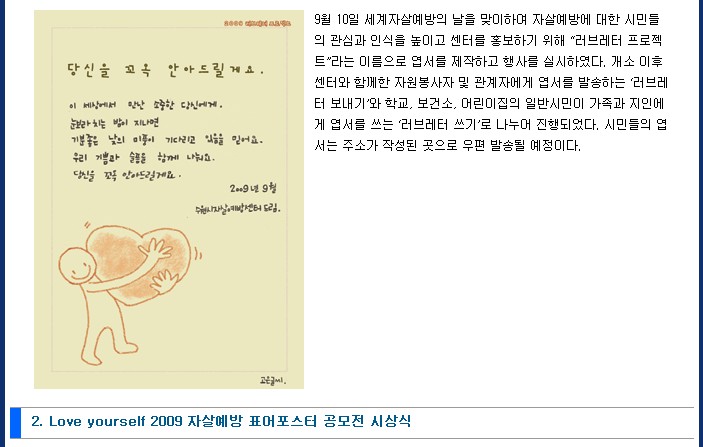 2009 러브레터 프로젝트
당신을 꼬옥 안아드릴게요.
이 세상에서 만난 소중한 당신에게.
눈보라치는 밤이 지나면
기분좋은 날의 미풍이 기다리고 있음을 믿어요.
우리 기쁨과 슬픔을 함께 나눠요.
당신을 꼬옥 안아드릴게요.
2009년 9월
수원시자살예방센터 드림.
고은글씨.
9월 10일 세계자살예방의 날을 맞이하여 자살예방에 대한 시민들
의 관심과 인식을 높이고 센터를 홍보하기 위해 “러브레터 프로젝
트”라는 이름으로 엽서를 제작하고 행사를 실시하였다. 개소 이후
센터와 함께한 자원봉사자 및 관계자에게 엽서를 발송하는 ‘러브레
터 보내기’와 학교, 보건소, 어린이집의 일반시민이 가족과 지인에
게 엽서를 쓰는 ‘러브레터 쓰기’로 나누어 진행되었다. 시민들의 엽
서는 주소가 작성된 곳으로 우편 발송될 예정이다.
2. Love yourself 2009 자살예방 표어포스터 공모전 시상식